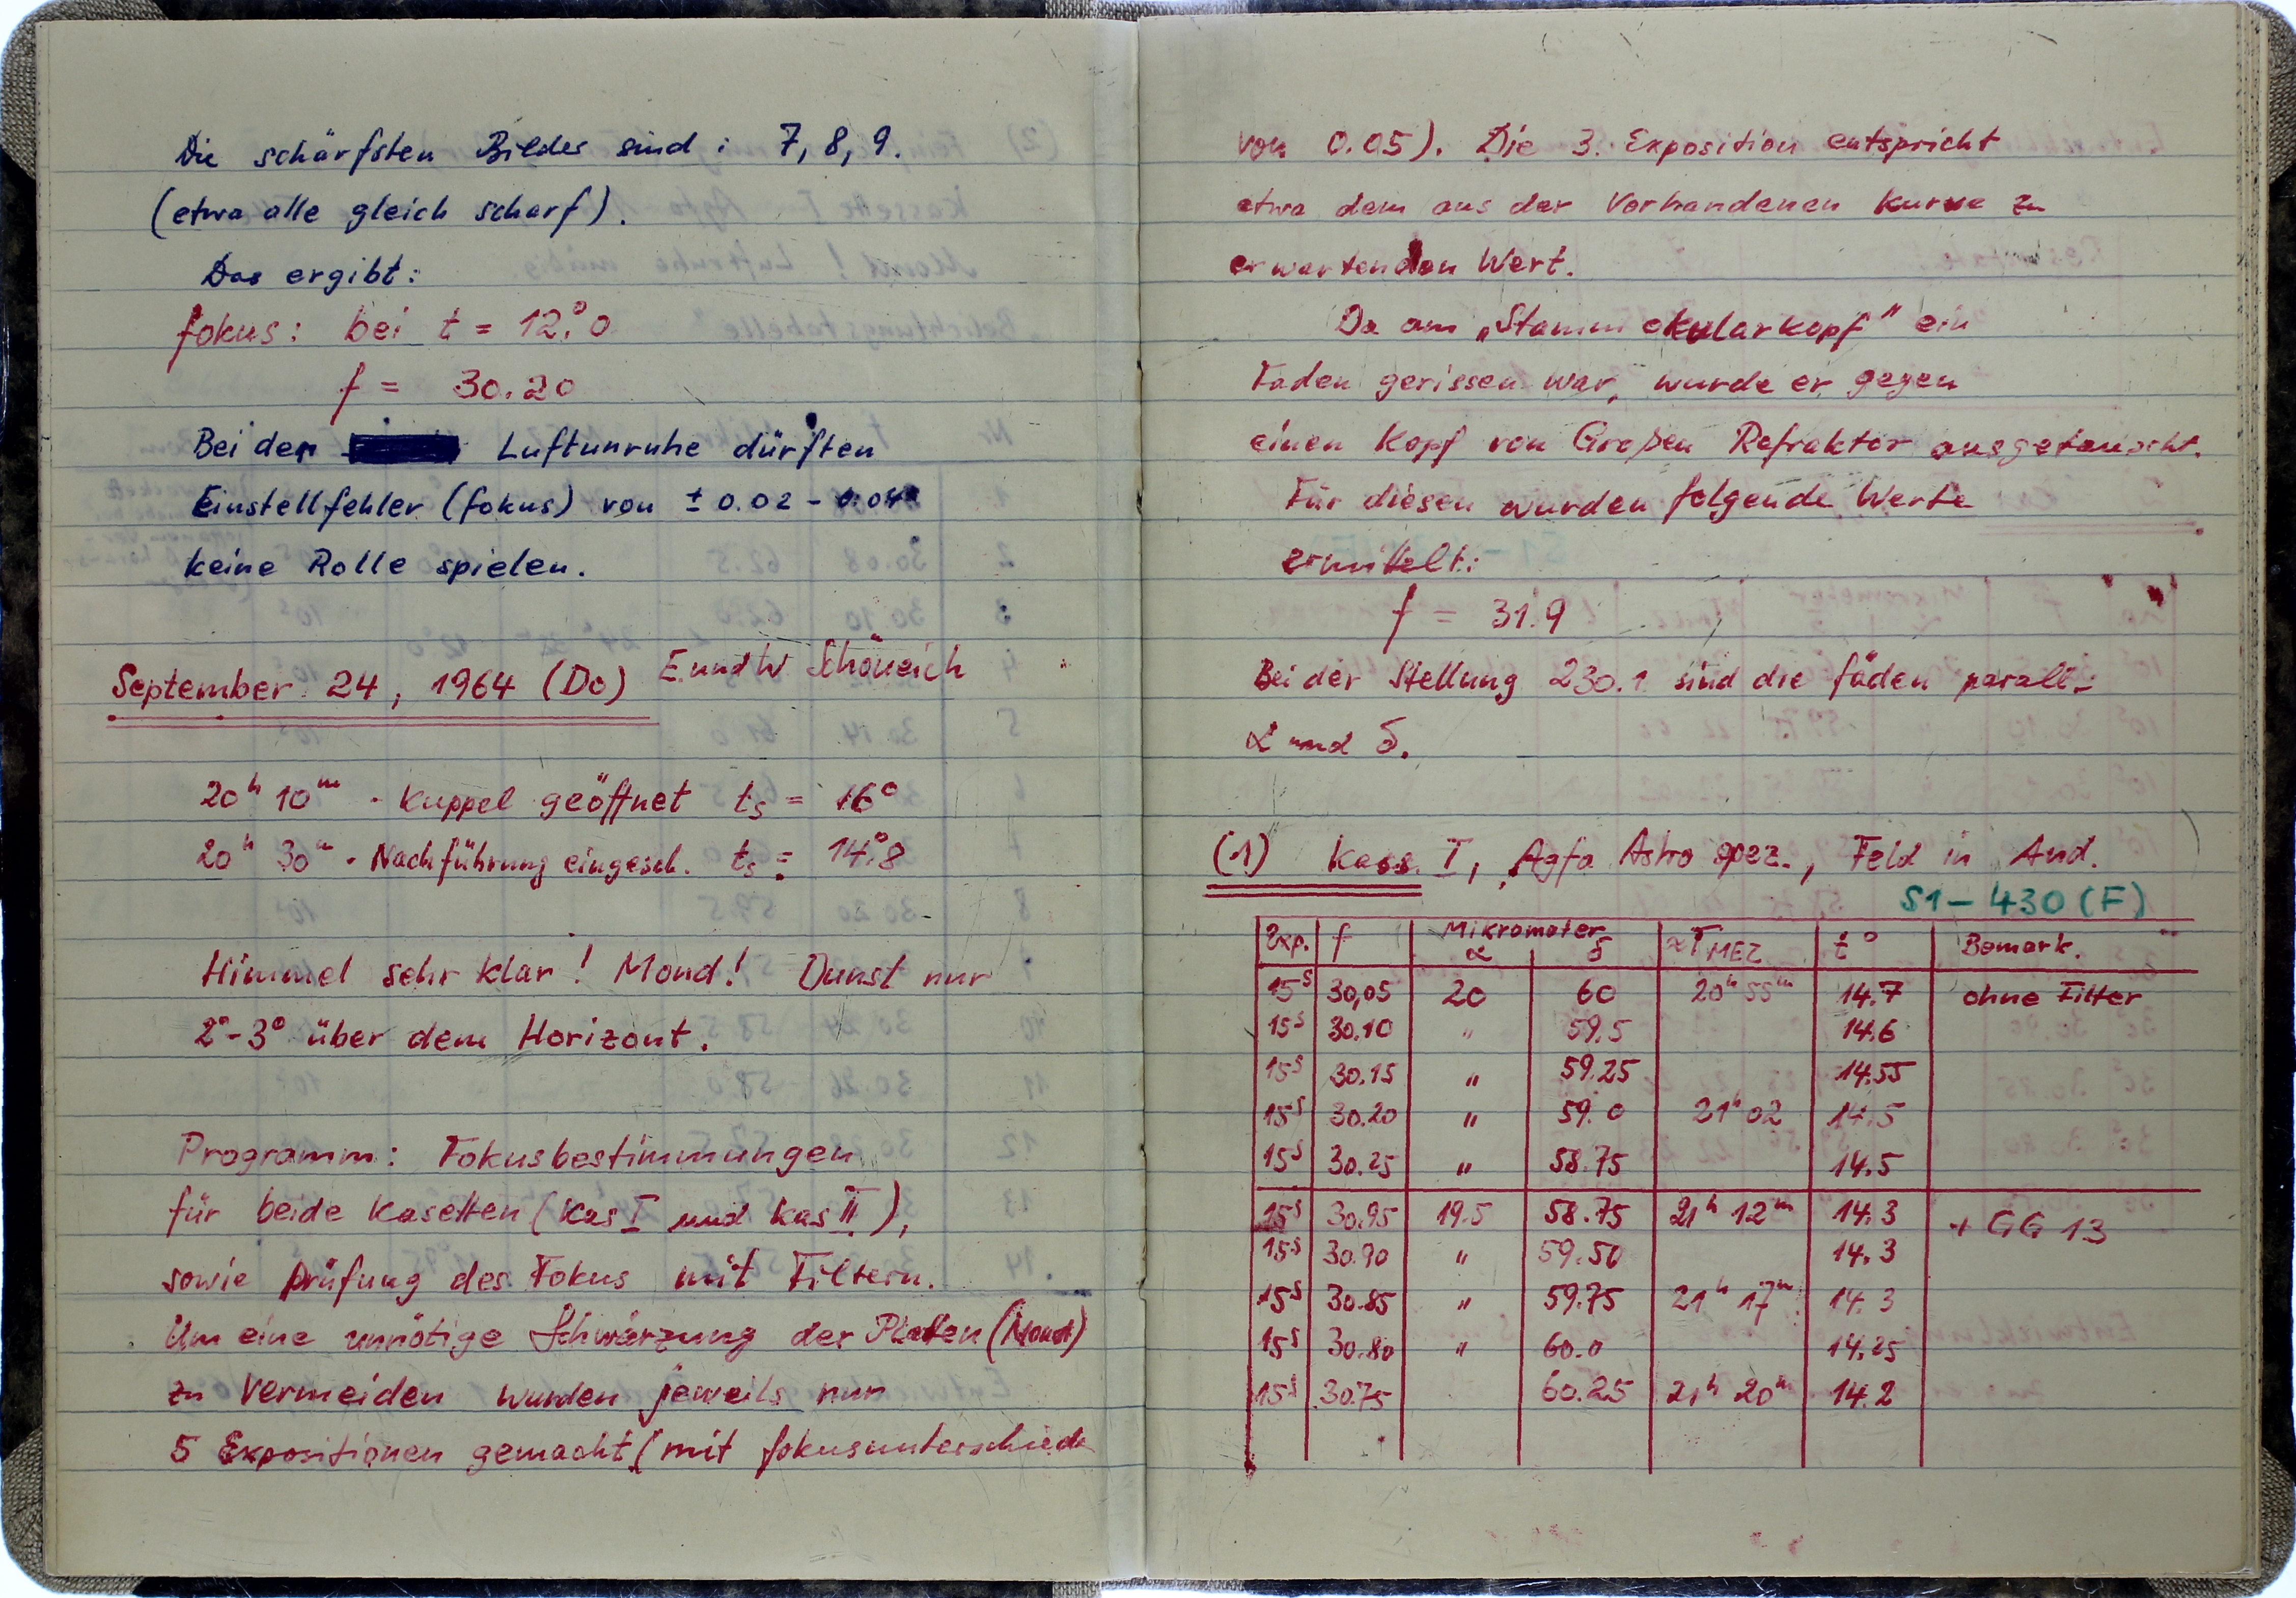 Die schärfsten Bilder sind: 7, 8, 9.
(etwa alle gleich scharf).
Das ergibt:
fokus: bei t = 12°.0
f = 30.20
Bei der Luftunruhe dürften
Einstellfehler (fokus) von ± 0.02 - 0.04
keine Rolle spielen.
September 24, 1964 (Do) E und W Schöneich
20h 10m · Kuppel geöffnet ts = 16°
20h 30m · Nachführung eingesch. ts = 14°.8
Himmel sehr klar! Mond! Dunst nur
2°-3° über dem Horizont.
Programm: Fokusbestimmungen
für beide Kasetten (Kas I und Kas II),
sowie Prüfung des Fokus mit Filtern.
Um eine unnötige Schwärzung der Platten (Mond)
zu vermeiden wurden jeweils nur
5 Expositionen gemacht (mit fokusunterschiede
von 0.05). Die 3. Exposition entspricht
etwa dem aus der vorhandenen Kurve zu
erwartenden Wert.
Da am „Stammokularkopf" ein
Faden gerissen war, wurde er gegen
einen Kopf von Großen Refraktor ausgetauscht.
Für diesen wurden folgende Werte
ermittelt:
f = 31.9
Bei der Stellung 230.1 sind die fäden parall.
α und δ.
(1) Kass. I, Agfa Astro spez., Feld in And.
S1-430 (F)
Exp. f Mikrometer α δ ≈TMEZ t° Bemerk.
15s 30,05 20 60 20h 55m 14.7 ohne Filter
15s 30.10 " 59.5 14.6
15s 30.15 " 59.25 14.55
15s 30.20 " 59.0 21h 02 14.5
15s 30.25 " 58.75 14.5
15s 30.95 19.5 58.75 21h 12m 14.3 + GG 13
15s 30.90 " 59.50 14.3
15s 30.85 " 59.75 21h 17m 14.3
15s 30.80 " 60.0 14.25
15s 30.75 60.25 21h 20m 14.2